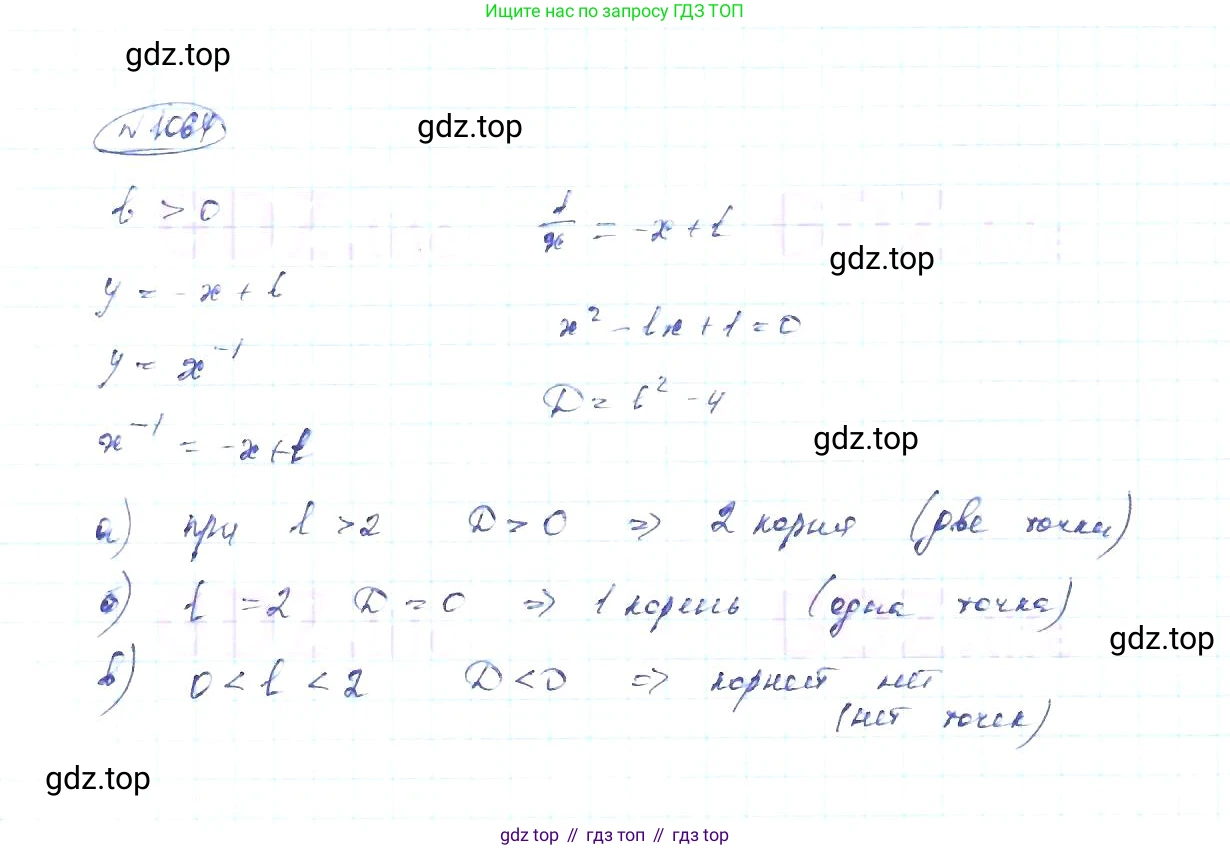 Ищите нас по запросу ГДЗ ТОП
gdz.top
N 1064
gdz.top
b > 0
1/x = -x + b
gdz.top
y = -x + b
x² - bx + 1 = 0
y = x⁻¹
D = b² - 4
x⁻¹ = -x + b
gdz.top
а) при b > 2 D > 0 => 2 корня (две точки)
б) b = 2 D = 0 => 1 корень (одна точка)
gdz.top
в) 0 < b < 2 D < 0 => корней нет
(нет точек)
gdz.top
gdz top // гдз топ // гдз top